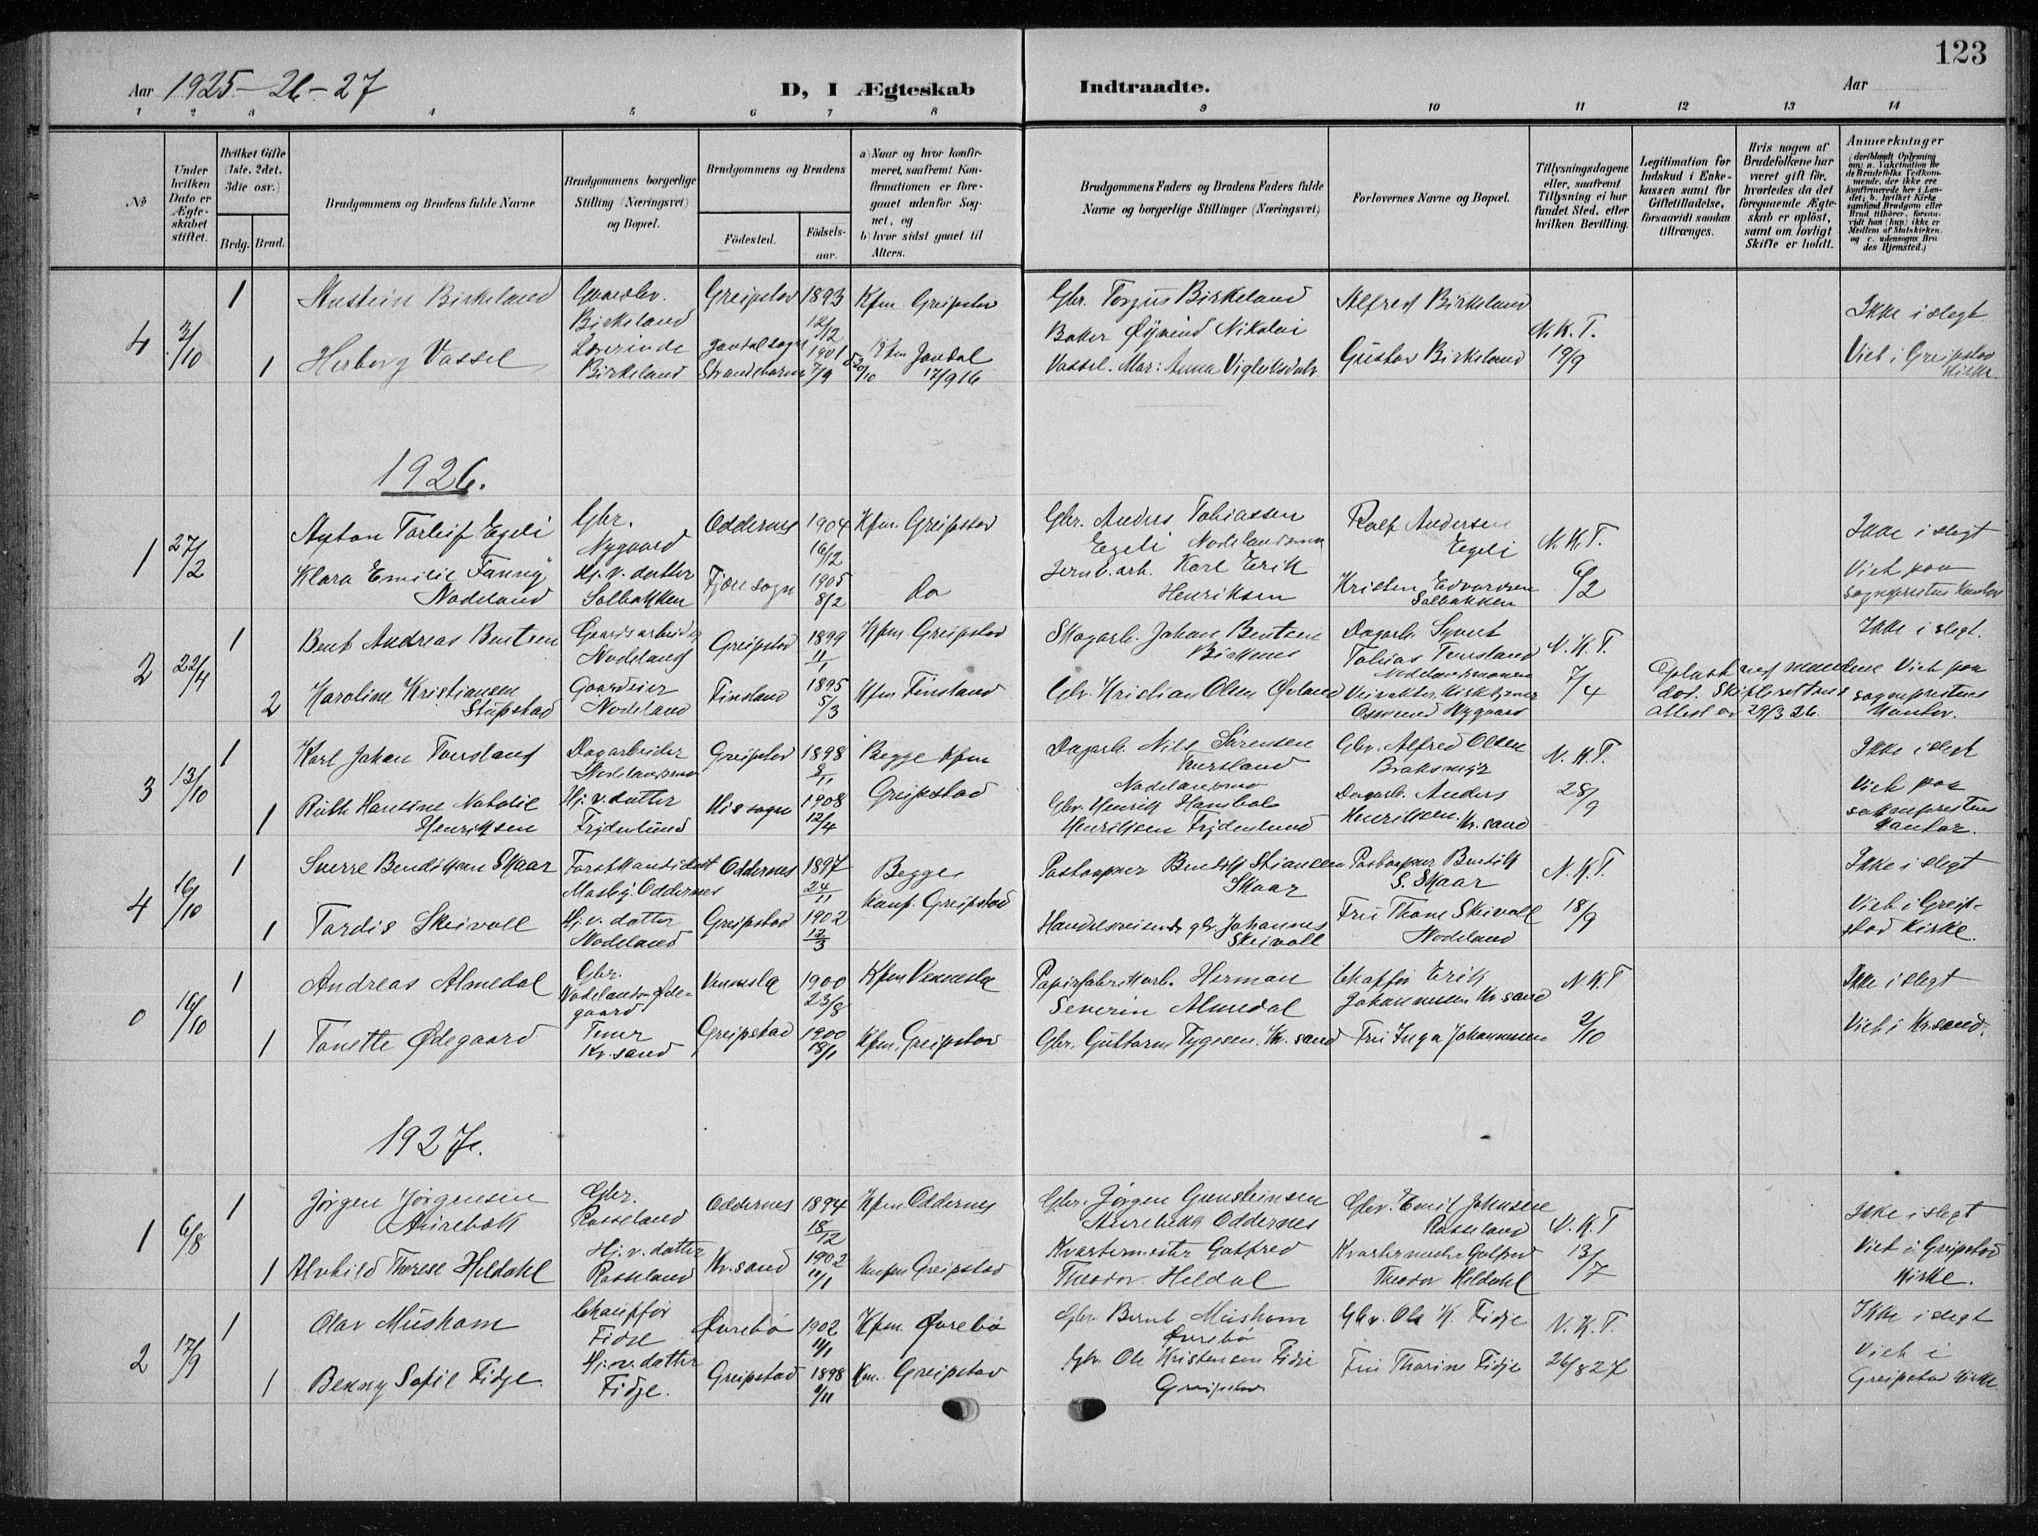 123
Aar 1925-26-27
D, I Ægteskab Indtraadte.
Aar
1 2 3 4 5 6 7 8 9 10 11 12 13 14
No
Under hvilken Dato er Ægteskabet stiftet.
Hvilket Gifte (1ste, 2det, 3die osv.)
Brdg. Brud.
Brudgommens og Brudens fulde Navne
Brudgommens borgerlige Stilling (Næringsvei) og Bopæl.
Brudgommens og Brudens
Fødested. Fødselsaar.
a) Naar og hvor konfirmeret, saafremt Konfirmationen er foregaaet udenfor Sognet, og
b) hvor sidst gaaet til Alters.
Brudgommens Faders og Brudens Faders fulde Navne og borgerlige Stillinger (Næringsvei)
Forlovernes Navne og Bopæl.
Tillysningsdagene eller, saafremt Tillysning ei har fundet Sted, efter hvilken Bevilling.
Legitimation for Indskud i Enkekassen samt for Giftetilladelse, forsaavidt saadan tiltrænges.
Hvis nogen af Brudefolkene har været gift før, hvorledes da det foregaaende Ægteskab er opløst, samt om lovligt Skifte er holdt.
Anmærkninger
4 3/10 1 Birkeland Birkeland Greipstad 1893 12/12 Kfm Greipstad Gbr. Torjus Birkeland Alfred Birkeland N.K.T. Ikke i slegt
1 Herborg Vassel Birkeland Strandebarm 1901 7/9 Kfm Jondal 17/9 16 Baker Øyvind Nikolai Vassel. Mor: Anna Gustav Birkeland 19/9 Viet i Greipstad Kirke.
1926.
1 27/2 Torleif Egeli Gbr. Nygaard Oddernes 1904 16/12 Kfm. Greipstad Gbr. Anders Tobiassen Egeli Rolf Andersen Egeli N.K.T. Ikke i slegt
Klara Emilie Fanny Nodeland Hj.v. datter Solbakken Fjære sogn 1905 8/2 Do Jernb.arb. Karl Erik Henriksen Kristen Edvardsen Solbakken 6/2 Viet paa sogneprestens Kontor
2 22/4 1 Bent Andreas Bentsen Gaardsarbeider Nodeland Greipstad 1899 Kfm. Greipstad Skogarb. Johan Bentsen Birkenes Dagarb. Syvert Tobias N.K.T. Ikke i slegt.
2 Karoline Kristiansen Stupstad Gaardeier Nodeland Finsland 1895 5/3 Kfm Finsland Gbr. Kristian Olsen Øvland Osmund Nygaard 7/4 Opløst ved mandens død. Skifterettens attest av 29/3 26. Viet paa sogneprestens Kontor.
3 13/10 1 Karl Johan Tursland Dagarbeider Greipstad 1898 Begge Kfm Greipstad Dagarb. Nils Sørensen Tursland Gbr. Alfred Olsen N.K.T. Ikke i slegt
1 Ruth Hansine Natalie Henriksen Hj.v. datter Frydenlund His sogn 1908 12/4 Gbr. Henrik Hanibal Henriksen Frydenlund Dagarb. Anders Henriksen Kr.sand 28/9 Viet paa sokneprestens Kontor.
4 16/10 1 Sverre Bendiksen Skaar Forstkandidat Mosby Oddernes Oddernes 1897 24/11 Begge konf. Greipstad Postaapner Bendik Stiansen Skaar Postaapner Bendik S. Skaar N.K.T. Ikke i slegt
1 Tordis Skeivoll Hj.v. datter Nodeland Greipstad 1902 12/3 Handelsreisende gbr. Johannes Skeivoll Fru Thone Skeivoll Nodeland 18/9 Viet i Greipstad Kirke.
0 16/10 1 Andreas Almedal Gbr. Nodeland-Ødegaard Vennesla 1900 23/8 Kfm Vennesla Papirfabrikkarb. Herman Severin Almedal Chaffør Erik Johannesen Kr.sand N.K.T Ikke i slegt
1 Tonette Ødegaard Kr.sand Greipstad 1900 18/1 Kfm. Greipstad Gbr. Guttorm Tygesen. Kr.sand Fru Inga Johannesen 2/10 Viet i Kr.sand.
1927.
1 6/8 1 Jørgen Jørgensen Aurebæk Gbr. Rosseland Oddernes 1894 18/12 Kfm Oddernes Gbr. Jørgen Gunsteinsen Aurebæk Oddernes Gbr. Emil Johnsen Rosseland N.K.T Ikke i slegt
1 Alvhild Therese Heldahl Hj.v. datter Rosseland Kr.sand 1902 11/1 Greipstad Kvartermester Gotfred Theodor Heldal Kvartermester Gotfred Theodor Heldahl 13/7 Viet i Greipstad Kirke.
2 17/9 1 Olav Musham Chauffør Fidje Øvrebø 1902 11/1 Kfm. Øvrebø Gbr. Bernt Musham Øvrebø Gbr. Ole K. Fidje N.K.T. Ikke i slegt
1 Benny Sofie Fidje. Hj.v. datter Fidje. Greipstad 1898 9/11 Greipstad Gbr. Ole Kristensen Fidje Greipstad Fru Thorine Fidje 26/8 27 Viet i Greipstad Kirke